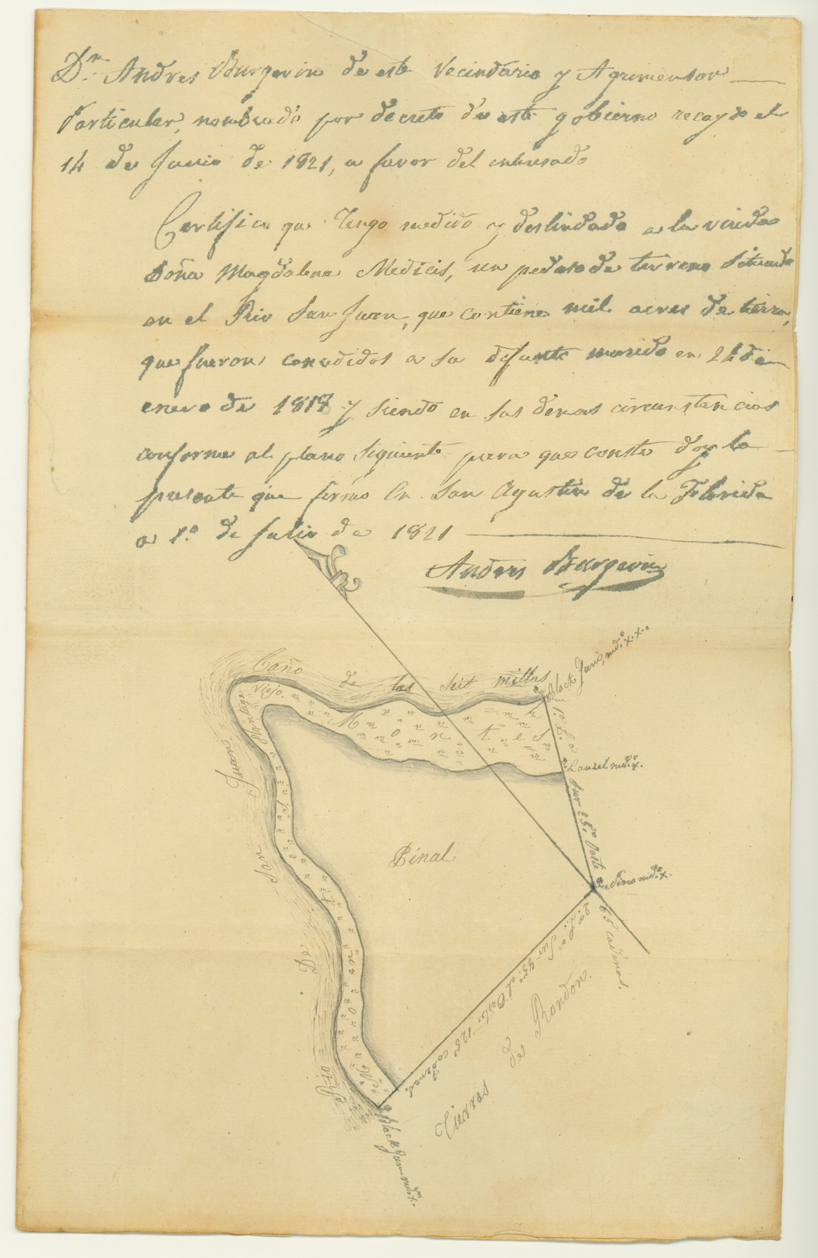 Dn. Andres Burgevin de este Vecindario y Agrimensor
Particular, nombrado por decreto de este gobierno recaydo el
14 de Junio de 1821, a favor del intersado
Certifico que Tengo medido y deslindado a la viuda
Doña Magdalena Medicis, un pedaso de terreno Situado
en el Rio San Juan, que contiene mil acres de tierra,
que fueron concedidos a su difunto marido en 24 de
enero de 1818 y siendo en sus demas circunstancias
conforme al plano Siguiente para que conste doy la
presente que firmo En San Agustin de la Florida
a 1.o de Julio de 1821
Andres Burgevin
Caño de las seit millas
Black Jack
Viejo
Montes
1a La
Laurel
Sur 25o Oeste
Rio De San Juans
Pinal
Pino
65 cadenas.
2a La Sur 45o al Oeste 125 cadenas.
Tierras de Rondon.
Black